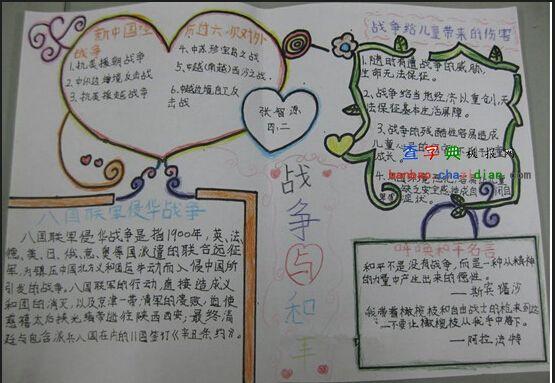 新中国经历过六次对外
战争
1.抗美援朝战争
2.中印边境反击战
3.抗美援越战争
4.中苏珍宝岛之战
5.中越(南越)西沙之战
6.中越边境自卫反
击战
张智源
四.二
战争给儿童带来的伤害
1.随时有遭战争的威胁,
生命无法保证。
2.战争给当地经济以重创,无
法保证基本生活保障。
3.战争的残酷性容易造成
儿童
成长
症状。
查字典 板报网
banbao.chazidian.com
战争与和平
八国联军侵华战争
八国联军侵华战争是指1900年,英、法、
德、美、日、俄、意、奥等国派遣的联合远征
军,为镇压中国北方义和团运动而入侵中国所
引发的战争。八国联军的行动,直接造成义
和团的消灭,以及京津一带清军的溃败,迫使
慈禧太后挟光绪帝逃往陕西西安;最终清
廷与包含派兵八国在内的11国签订《辛丑条约》。
呼唤和平名言
和平不是没有战争,而是一种从精神
的力量中产生出来的德性。
——斯宾诺沙
我带着橄榄枝和自由战士的枪来到这
不要让橄榄枝从我手中落下。
——阿拉法特